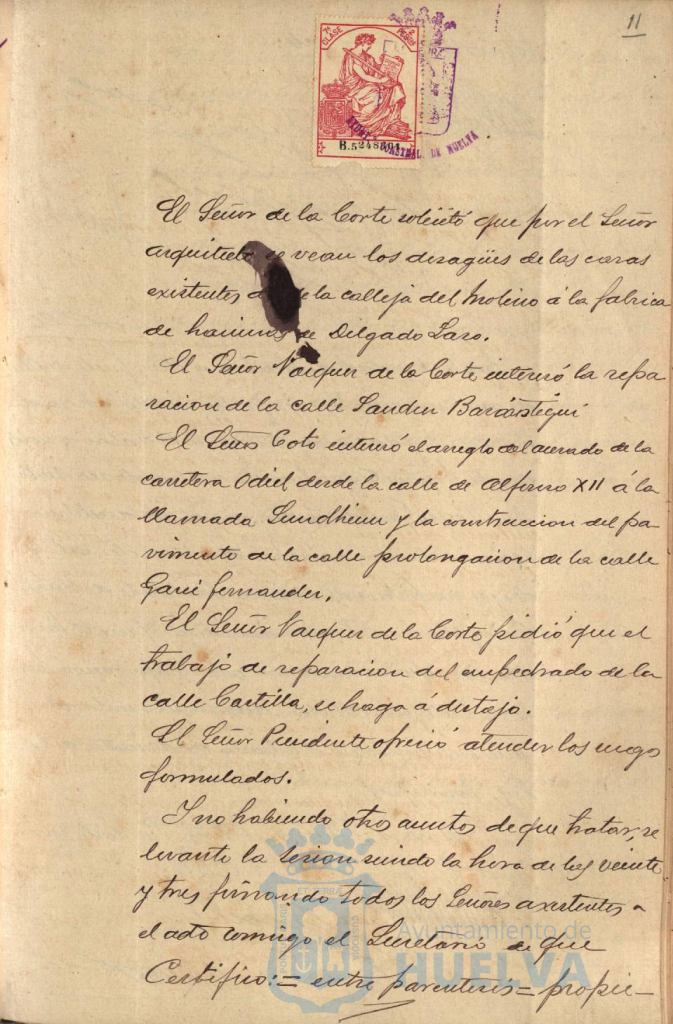 11
7ª CLASE
2 PESETAS
B.5248804
AYUNT. CONSTNAL. DE HUELVA
El Señor de la Corte solicitó que por el Señor
arquitecto se vean los desagües de las casas
existentes de la calleja del Molino á la fabrica
de harinas de Delgado Laso.
El Señor Vazquez de la Corte interesó la repa
racion de la calle Sanchez Barcaiztegui
El Señor Coto interesó el arreglo del acerado de la
carretera Odiel desde la calle de Alfonso XII á la
llamada Sundheim y la construccion del pa-
vimento de la calle prolongacion de la calle
Garci fernandez.
El Señor Vazquez de la Corte pidió que el
trabajo de reparacion del empedrado de la
calle Castilla, se haga á destajo.
El Señor Presidente ofreció atender los ruegos
formulados.
Y no habiendo otros asuntos de que tratar, se
levanto la sesion siendo la hora de las veinte
y tres firmando todos los Señores asistentes a
el acto comigo el Secretario de que
Certifico:= entre parentesis = propie-
Ayuntamiento de
HUELVA